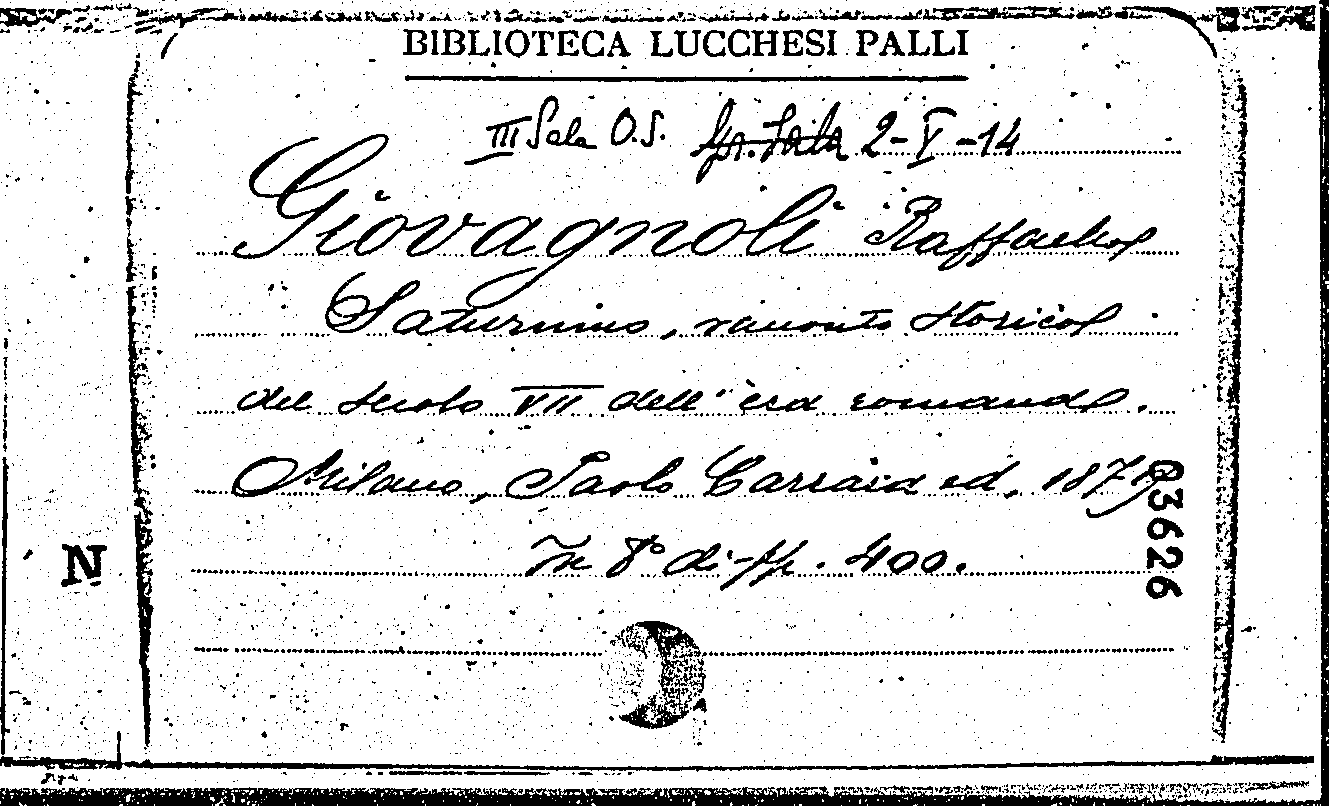 BIBLIOTECA LUCCHESI PALLI
III Sala O.S. Gr. Sala 2-V-14
Giovagnoli Raffaello
Saturnino, racconto storico
del secolo VII dell'èra romana.
Milano, Paolo Carrara ed. 1879
In 8° di pp. 400.
03626
N